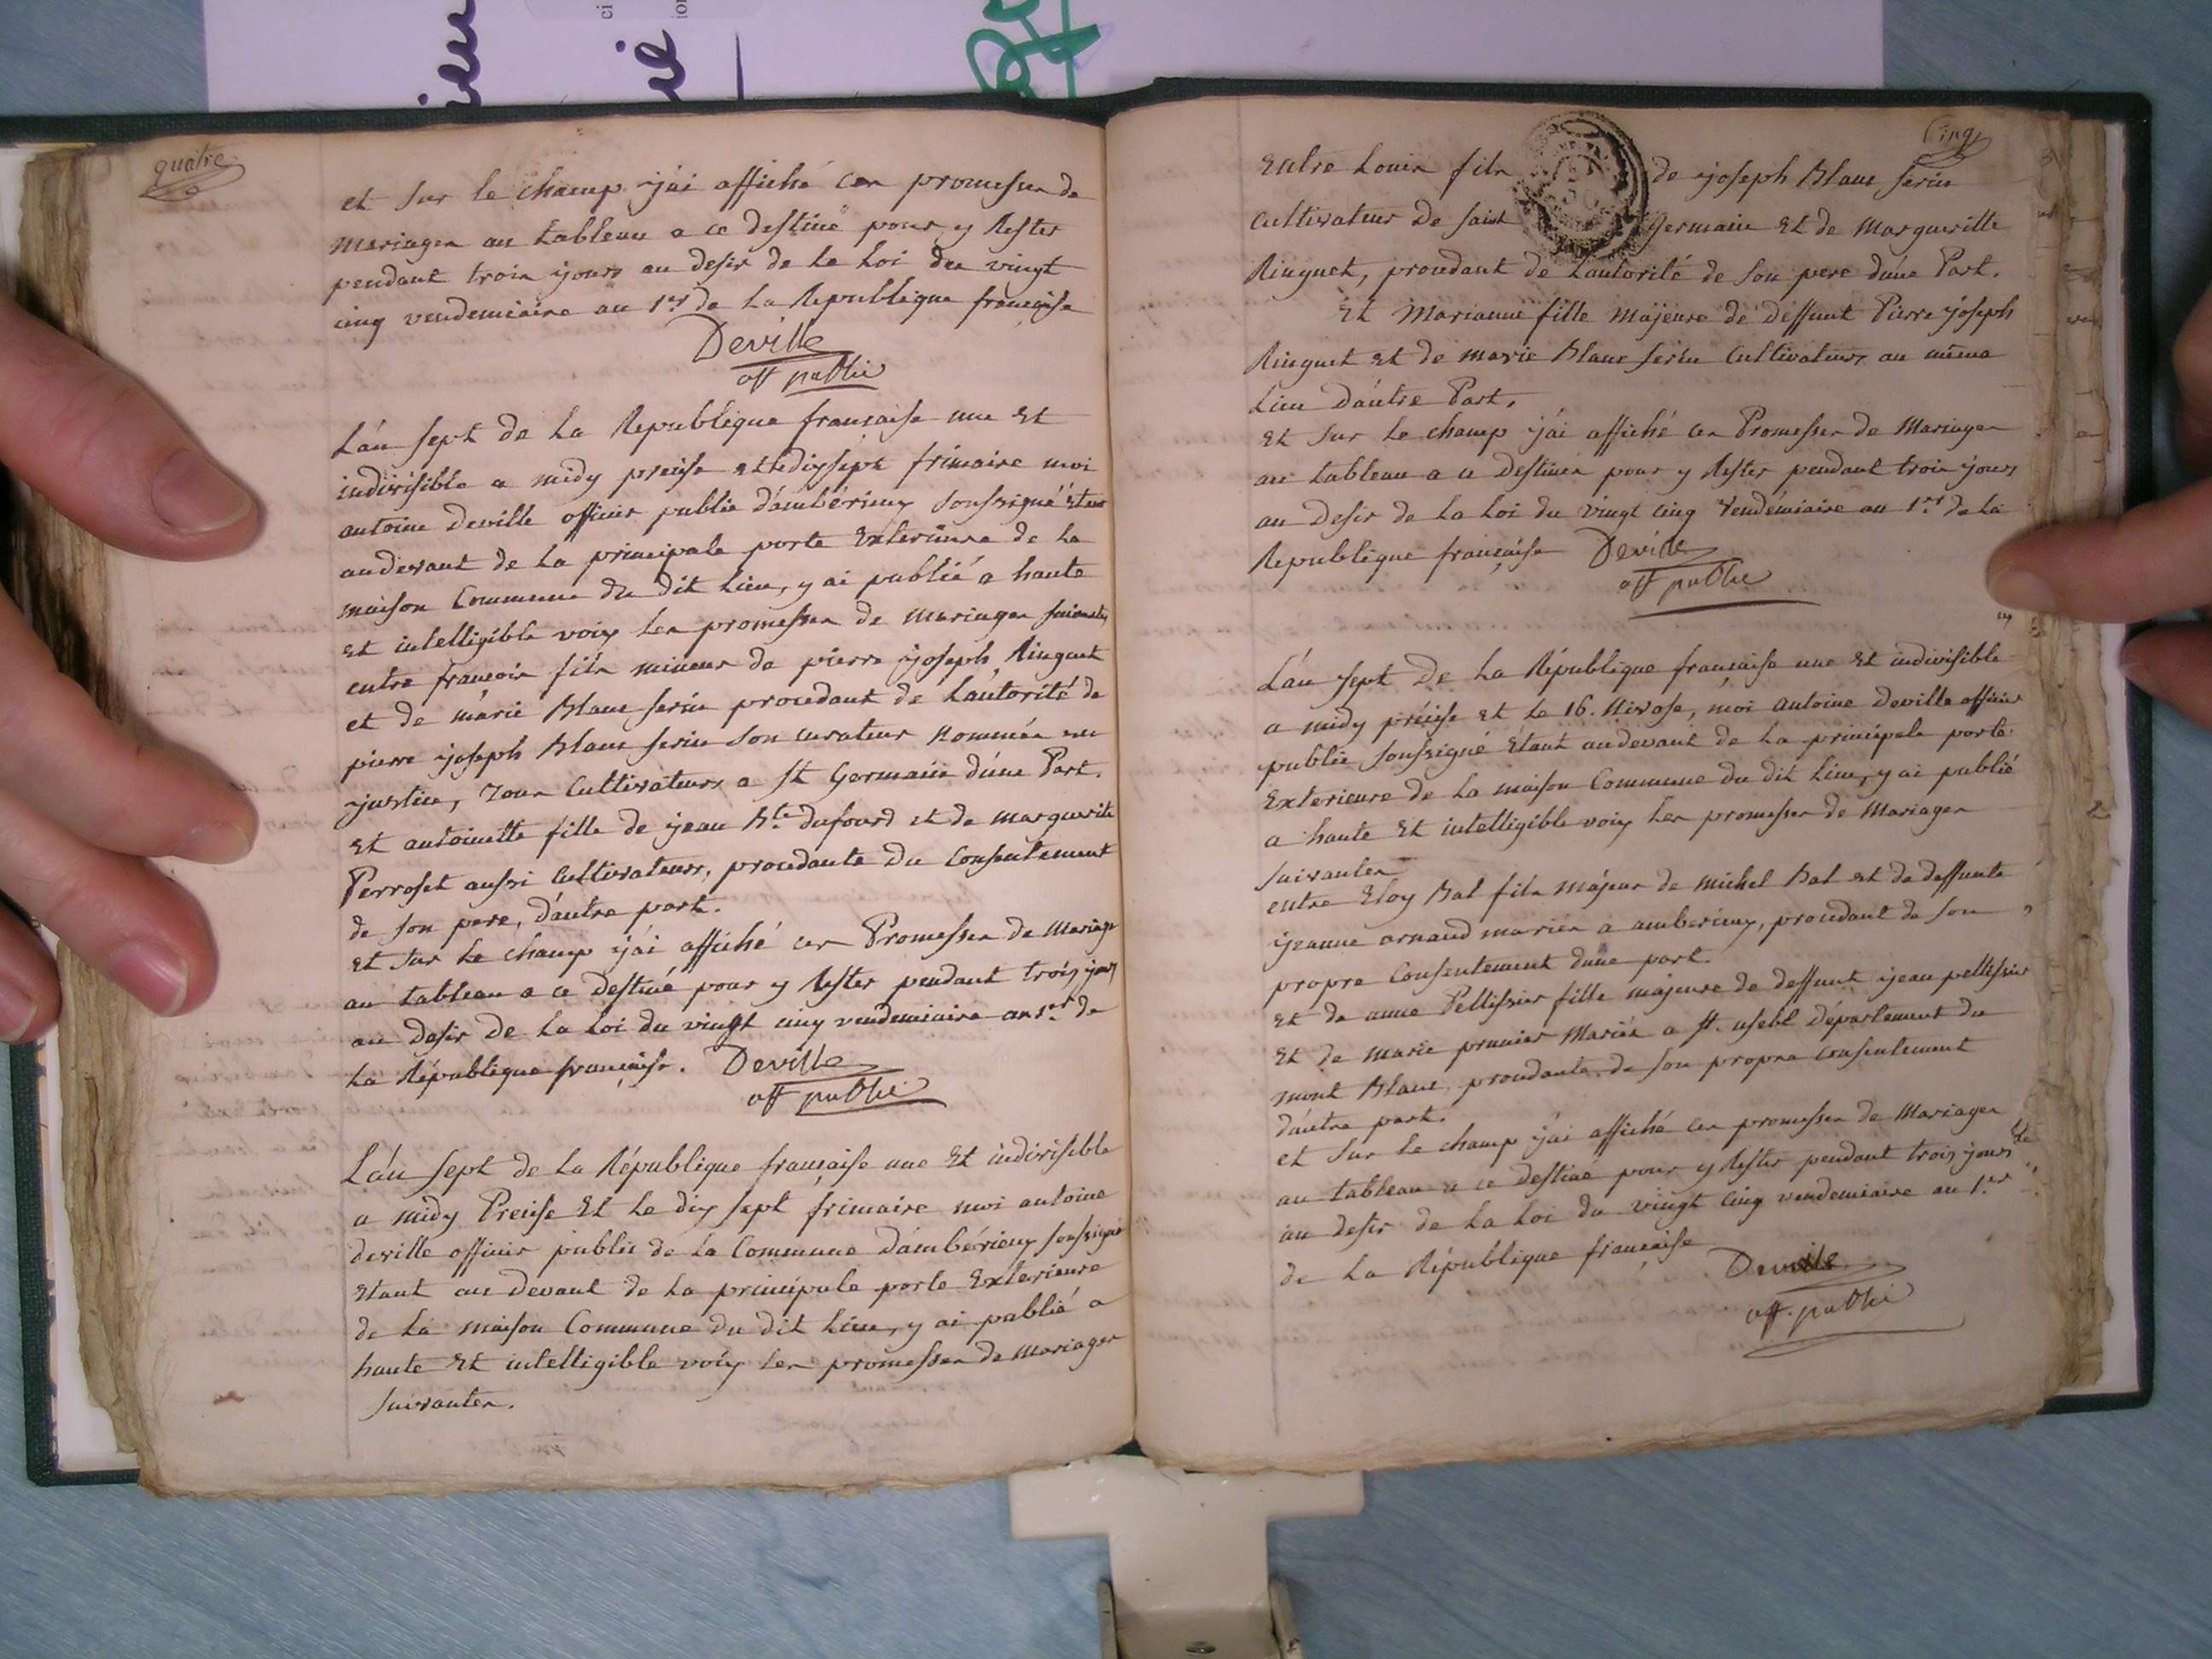 quatre
et sur le champ j'ai affiché ces promesses de
mariages au tableau a ce destiné pour y rester
pendant trois jours au desir de la Loi du vingt
cinq vendemiaire an 1er de la Republique française
Deville
off public
L'an sept de la Republique française une Et
indivisible a midy precise et le dixsept frimaire moi
antoine Deville officier public d'ambérieux soussigné Etant
audevant de la principale porte Exterieure de la
maison Commune du dit Lieu, y ai publié a haute
et intelligible voix les promesses de mariages suivantes
entre françois fils mineur de pierre joseph Ringuet
et de marie Blanc ferin procedant de L'autorité de
pierre joseph Blanc ferin son curateur Nommée en
justice, Tous Cultivateurs a St Germain d'une Part.
Et antoinette fille de jean Bte. dufourd et de marguerite
Perroset aussi Cultivateurs, procedante du Consentement
de son pere, d'autre part.
Et sur le champ j'ai affiché ces Promesses de Mariage
au tableau a ce destiné pour y rester pendant trois jours
au desir de la Loi du vingt cinq vendemiaire an 1er. de
la République française. Deville
off public
L'an sept de la République française une Et indivisible
a midy Precise Et le dix sept frimaire moi antoine
deville officier public de la Commune d'ambérieux soussigné
Etant au devant de la principale porte Exterieure
de la maison Commune du dit Lieu, y ai publié a
haute Et intelligible voix les promesses de Mariages
suivantes.
Cinq
Entre Louis fils de joseph Blanc ferin
cultivateur de saint Germain Et de Margueritte
Ringuet, procedant de L'autorité de son pere d'une Part.
Et Marianne fille majeure de deffunt Pierre joseph
Ringuet Et de marie Blanc ferin Cultivateurs au même
Lieu d'autre Part.
Et sur le champ j'ai affiché ces Promesses de Mariages
au tableau a ce destinée pour y rester pendant trois jours
au desir de la Loi du vingt cinq Vendémiaire an 1.er de la
Republique française Deville
off public
L'an sept de la République française une Et indivisible
a midy précise et le 16. Nivose, moi antoine Deville officier
public soussigné Etant audevant de la principale porte
Exterieure de la maison Commune du dit Lieu, y ai publié
a haute Et intelligible voix les promesses de Mariages
suivantes
entre Eloy Bal fils majeur de michel Bal et de deffunte
jeanne arnaud mariés a amberieux, procedant de son
propre Consentement d'une part.
Et de anne Pellissier fille majeure de deffunt jean pellissier
Et de Marie prunier Mariés a St. usebl département du
mont Blanc, procedante de son propre consentement
d'autre part.
et sur le champ j'ai affiché ces promesses de Mariages
au tableau a ce destiné pour y rester pendant trois jours
au desir de la Loi du vingt cinq vendemiaire an 1.er
de la République française
Deville
off. public